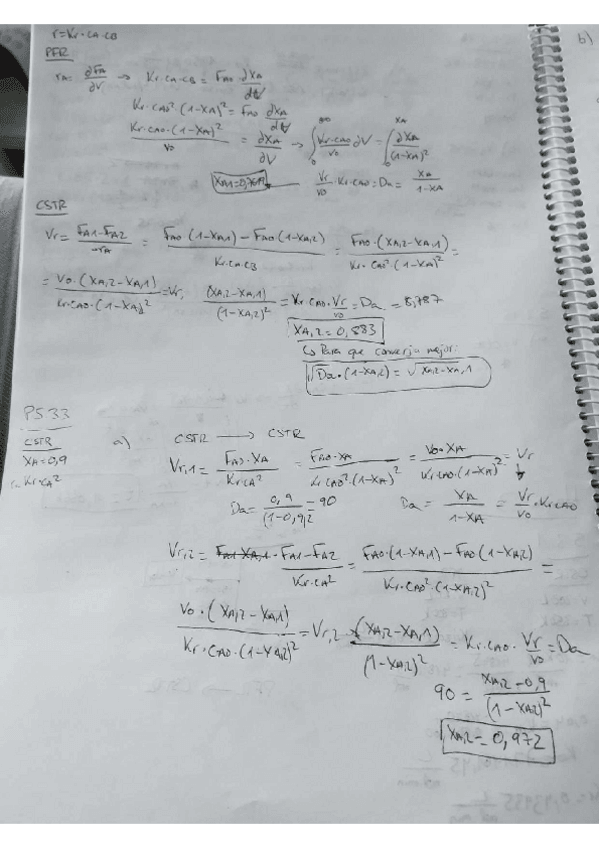 r = Kr·CA·CB
PFR
rA = ∂FA/∂V → Kr·CA·CB = FA0·∂XA/∂V
Kr·CA0²·(1-XA)² = FA0 ∂XA/∂V
Kr·CA0·(1-XA)²/v0 = ∂XA/∂V → ∫ Kr·CA0/v0 ∂V = ∫₀^XA ∂XA/(1-XA)²
Vr/v0·Kr·CA0 = Da = XA/(1-XA)
CSTR
Vr = (FA1-FA2)/-rA = (FA0(1-XA1) - FA0(1-XA,2))/(Kr·CA·CB) = FA0·(XA,2-XA,1)/(Kr·CA0²·(1-XA)²) =
= V0·(XA,2-XA,1)/(Kr·CA0·(1-XA)²) = Vr, (XA,2-XA,1)/(1-XA,2)² = Kr·CA0·Vr/v0 = Da = 8,787
XA,2 = 0,883
↳ Para que converja mejor:
√Da·(1-XA,2) = √(XA,2-XA,1)
P533
CSTR
XA = 0,9
Kr·CA²
a) CSTR → CSTR
Vr,1 = FA0·XA/(Kr·CA²) = FA0·XA/(Kr·CA0²·(1-XA)²) = V0·XA/(Kr·CA0·(1-XA)²) = Vr
Da = 0,9/(1-0,9)² = 90 Da = XA/(1-XA) = Vr/v0·Kr·CA0
Vr,2 = (FA1-FA2)/(Kr·CA²) = (FA0·(1-XA,1) - FA0(1-XA,2))/(Kr·CA0²·(1-XA,2)²) =
V0·(XA,2-XA,1)/(Kr·CA0·(1-XA,2)²) = Vr,2 (XA,2-XA,1)/(1-XA,2)² = Kr·CA0·Vr/v0 = Da
90 = (XA,2-0,9)/(1-XA,2)²
XA,2 = 0,972
b)